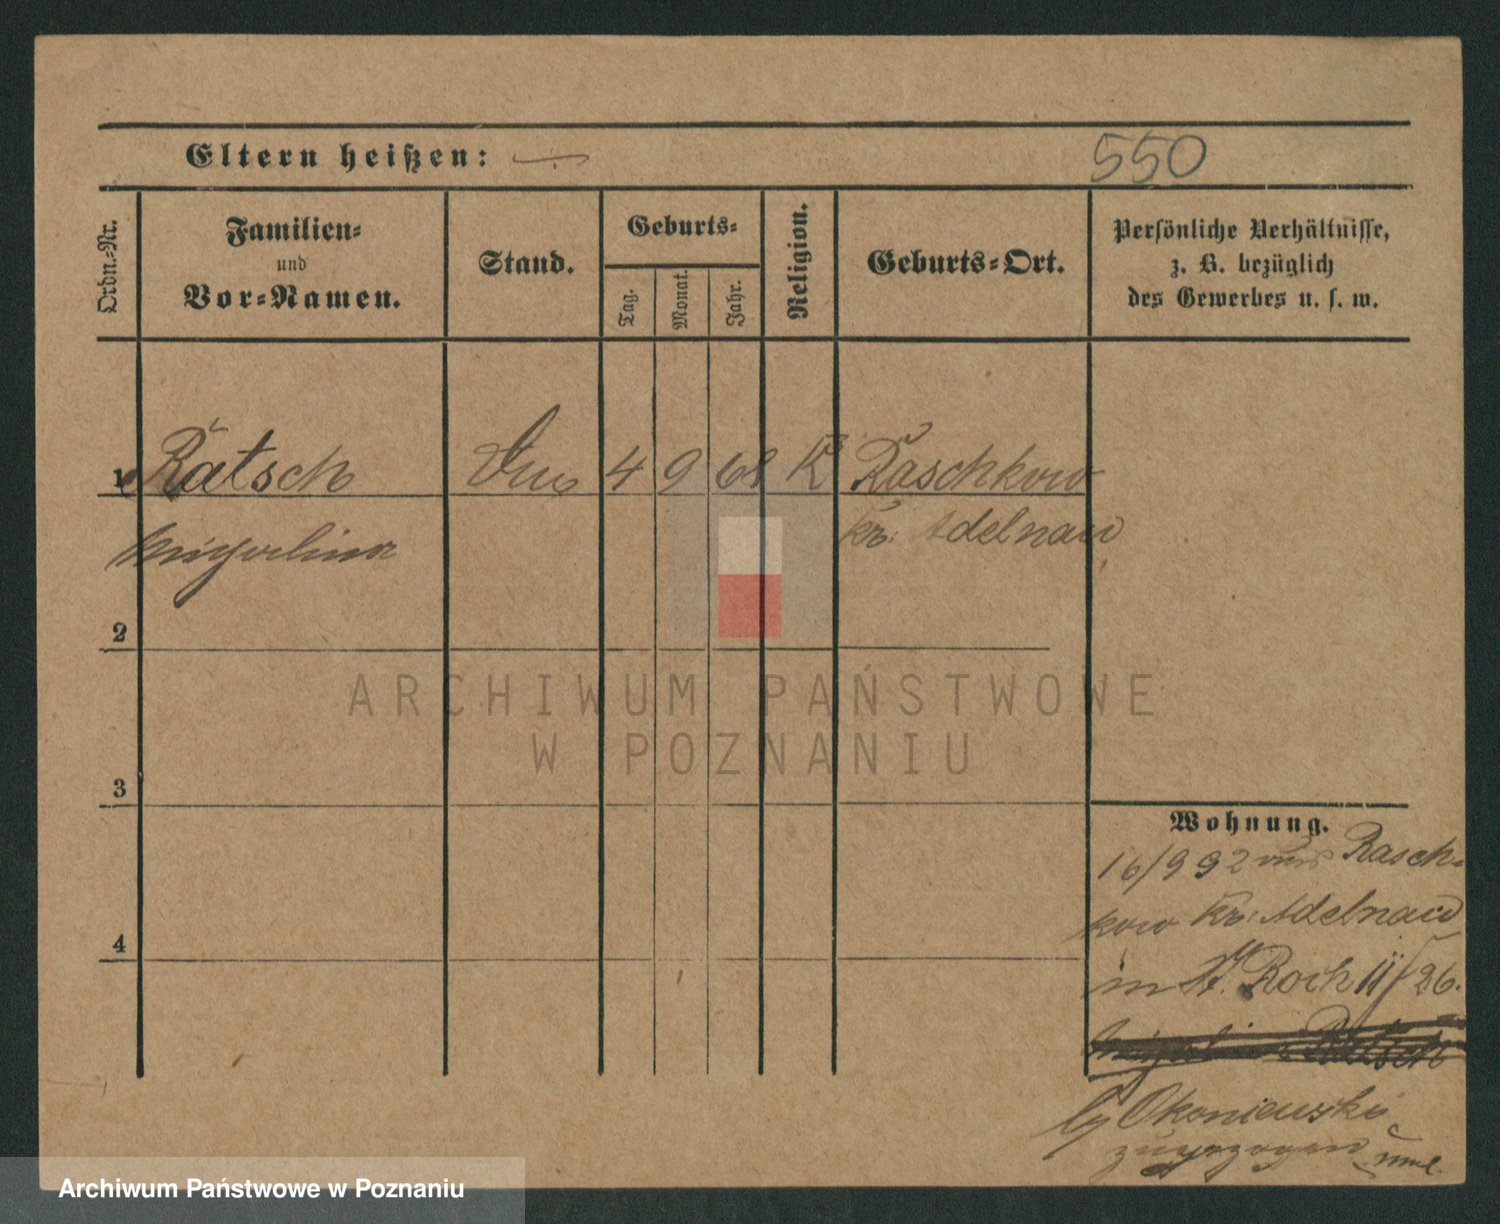 Eltern heißen: —
550
Ordn.-Nr.
Familien-
und
Vor-Namen.
Stand.
Geburts-
Tag.
Monat.
Jahr.
Religion.
Geburts-Ort.
Persönliche Verhältnisse,
z. B. bezüglich
des Gewerbes u. s. w.
1 Ratsch 4 9 68 K Raschkow
Kr: Adelnau
2
3
4
Wohnung.
16/9 92 von Rasch-
kow Kr: Adelnau
in St. Roch 11/26.
Ratsch
by Okoniewski
zugezogen
ARCHIWUM PAŃSTWOWE
W POZNANIU
Archiwum Państwowe w Poznaniu